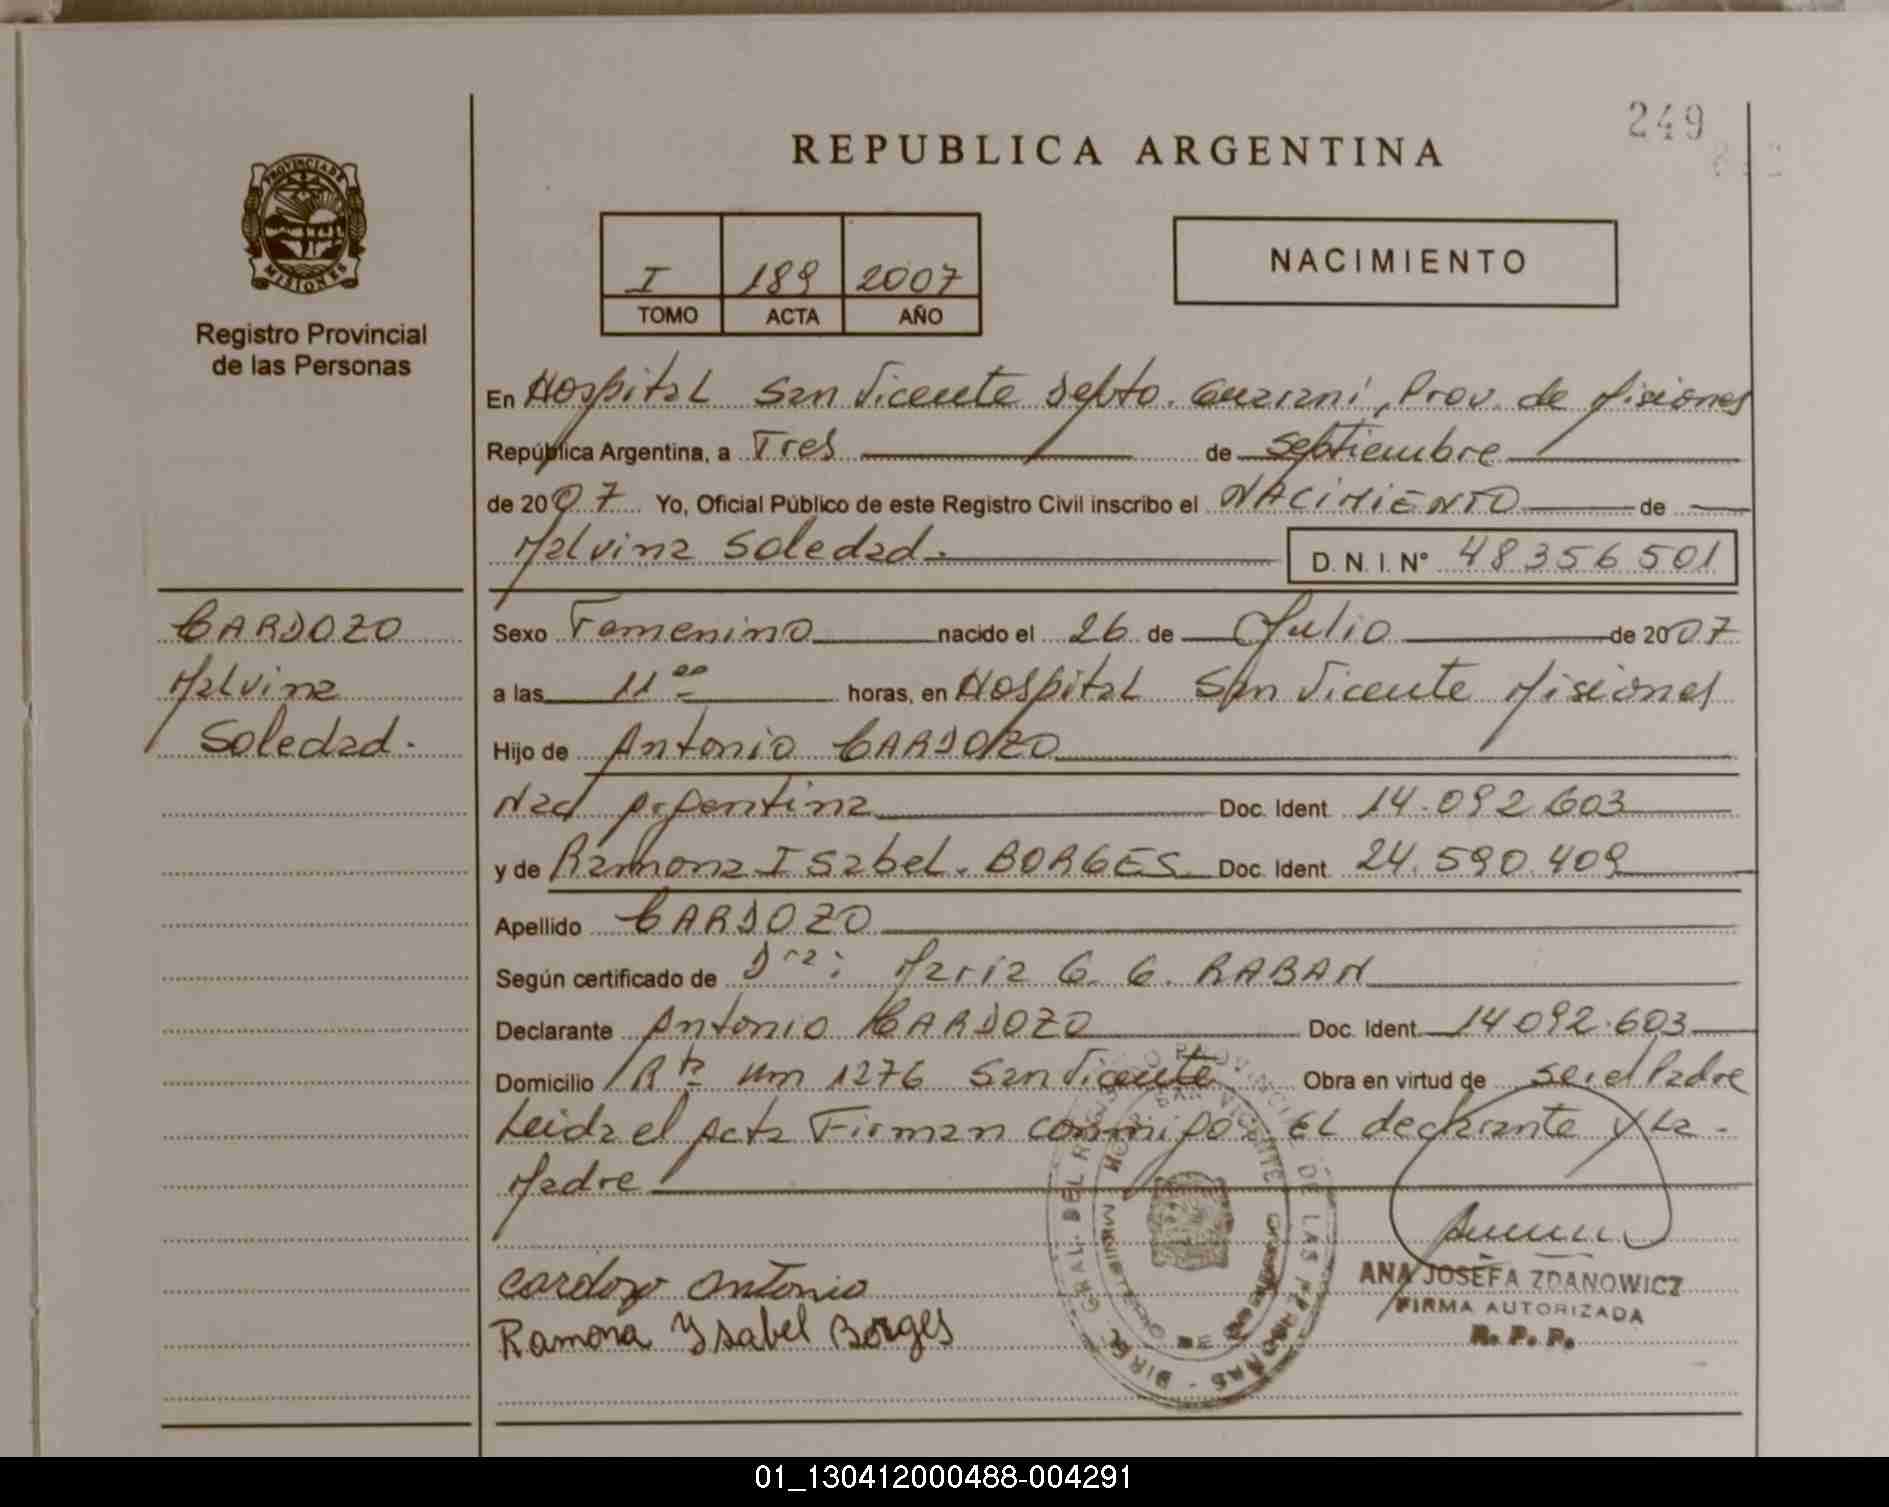 249
REPUBLICA ARGENTINA
PROVINCIA DE
MISIONES
Registro Provincial
de las Personas
I 189 2007
TOMO ACTA AÑO
NACIMIENTO
En Hospital San Vicente Depto. Guarani, Prov. de Misiones
República Argentina, a Tres de Septiembre
de 2007 Yo, Oficial Público de este Registro Civil inscribo el NACIMIENTO de
Malvina Soledad.
D. N. I. N° 48356501
CARDOZO
Malvina
Soledad.
Sexo Femenino nacido el 26 de Julio de 2007
a las 11 00 horas, en Hospital San Vicente Misiones
Hijo de Antonio CARDOZO
Nac Argentina Doc. Ident. 14.092.603
y de Ramona Isabel. BORGES Doc. Ident. 24.590.409
Apellido CARDOZO
Según certificado de Dra: Maria G. G. RABAN
Declarante Antonio CARDOZO Doc. Ident. 14.092.603
Domicilio Rta Km 1276 San Vicente Obra en virtud de ser el Padre
Leida el Acta Firman conmigo: EL declarante y La
Madre
Cardozo Antonio
Ramona Ysabel Borges
ANA JOSEFA ZDANOWICZ
FIRMA AUTORIZADA
R. P. P.
01_130412000488-004291